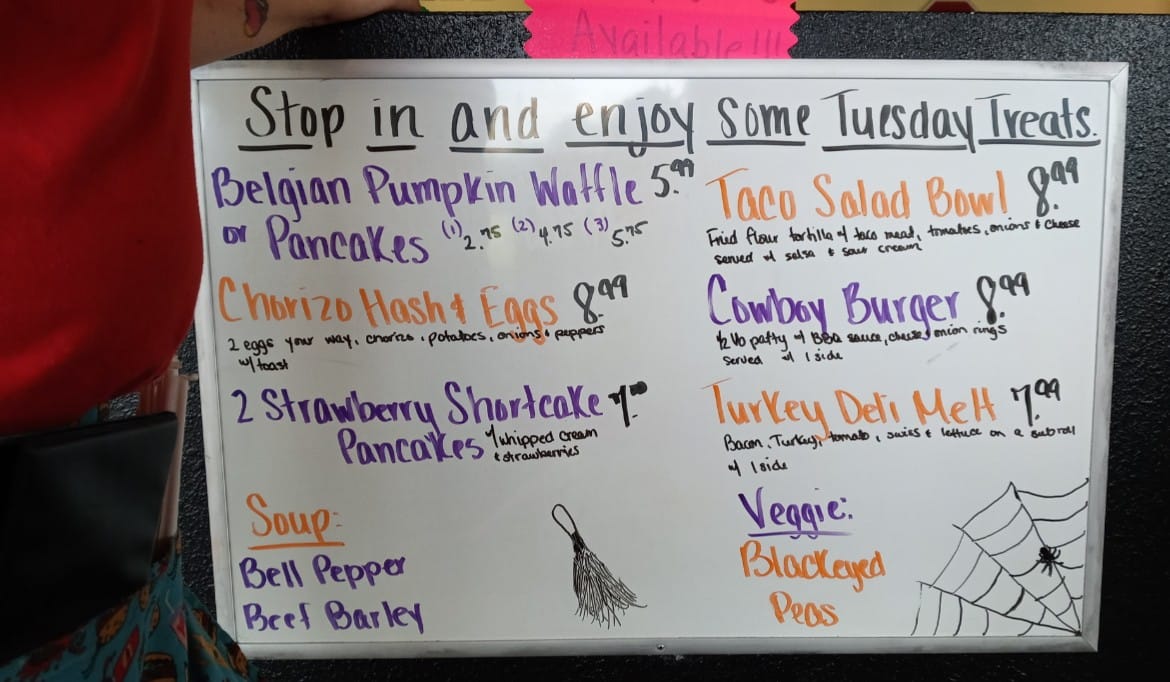 Available!!!
Stop in and enjoy some Tuesday Treats.
Belgian Pumpkin Waffle 5.99
or Pancakes (1) 2.75 (2) 4.75 (3) 5.75
Chorizo Hash & Eggs 8.99
2 eggs your way, chorizo, potatoes, onions & peppers
w/ toast
2 Strawberry Shortcake
Pancakes w/ whipped cream
& strawberries
Soup:
Bell Pepper
Beef Barley
Taco Salad Bowl 8.99
Fried flour tortilla w/ taco meat, tomatoes, onions & cheese
served w/ salsa & sour cream
Cowboy Burger 8.99
1/2 lb patty w/ BBQ sauce, cheese, onion rings
served w/ 1 side
Turkey Deli Melt 7.99
Bacon, Turkey, tomato, swiss & lettuce on a sub roll
w/ 1 side
Veggie:
Blackeyed
Peas